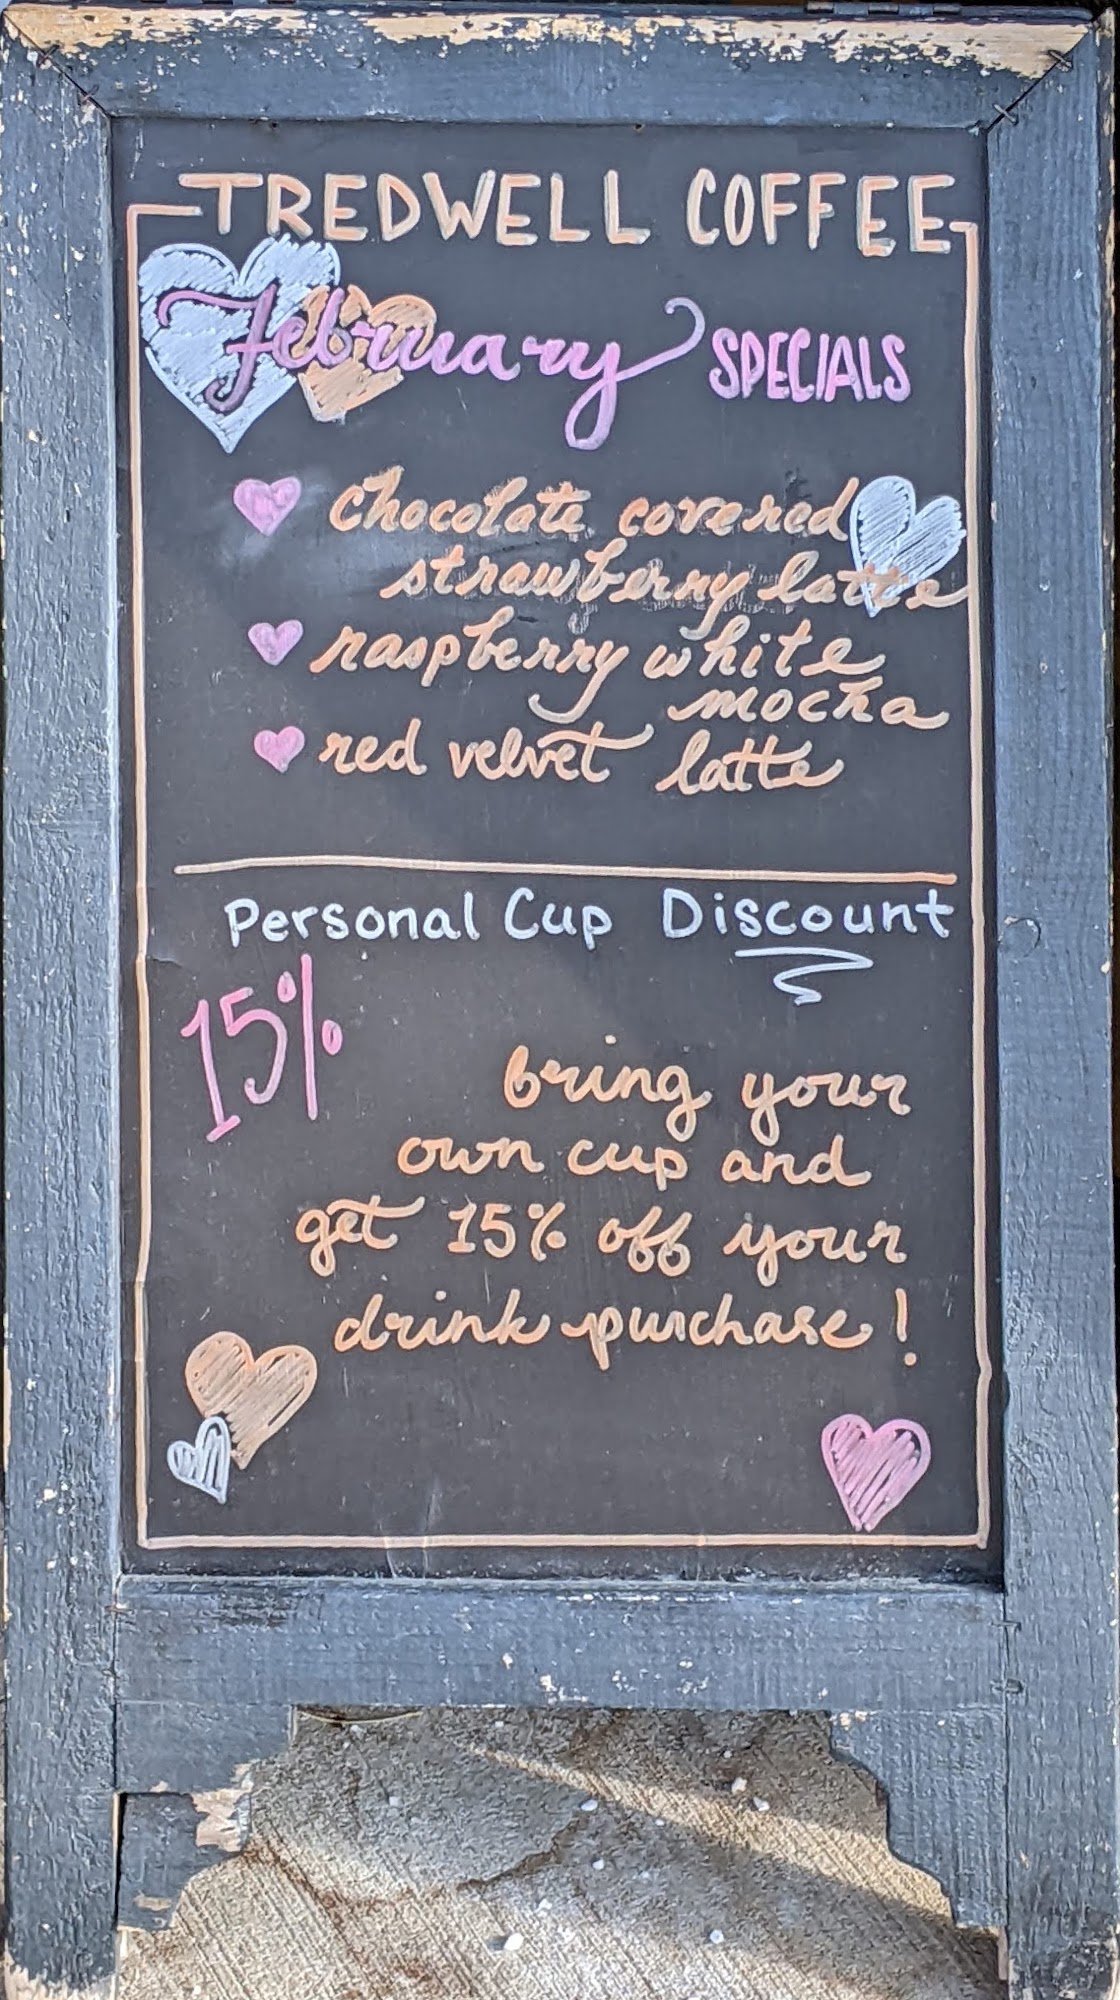 TREDWELL COFFEE
February SPECIALS
chocolate covered
strawberry latte
raspberry white
mocha
red velvet latte
Personal Cup Discount
15%
bring your
own cup and
get 15% off your
drink purchase!